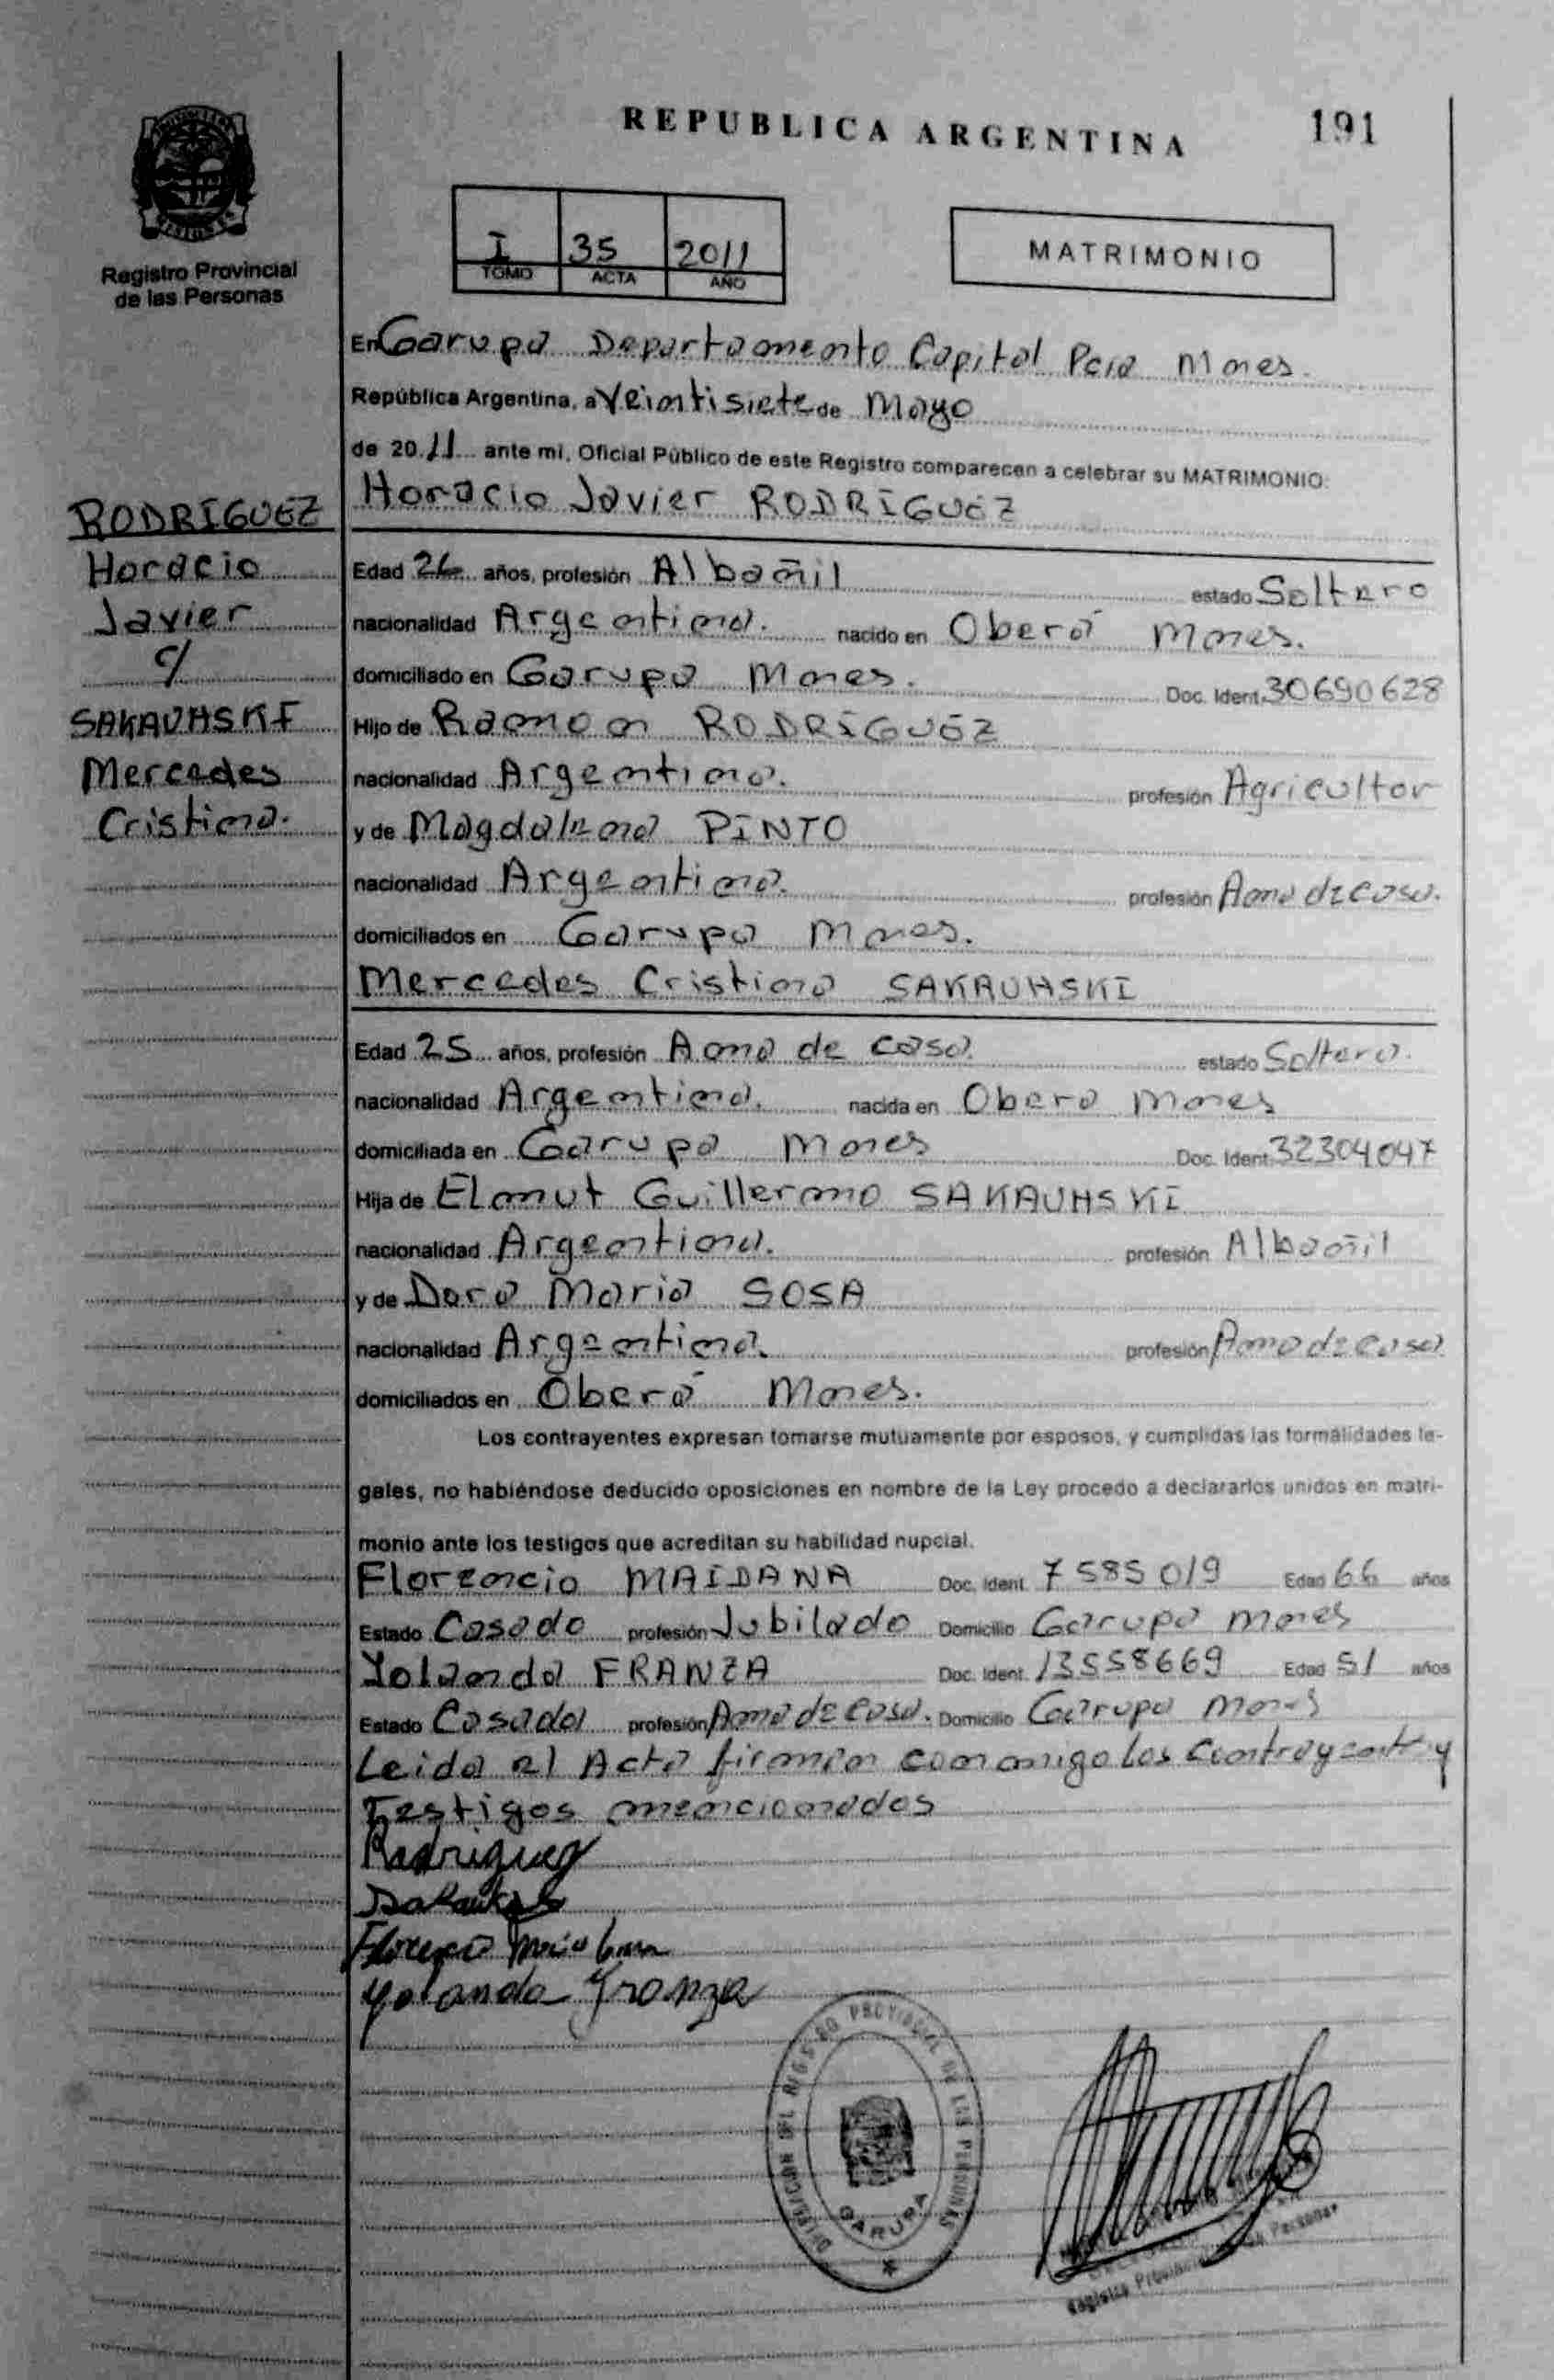 REPUBLICA ARGENTINA
191
Registro Provincial
de las Personas
I 35 2011
TOMO ACTA AÑO
MATRIMONIO
En Garupa Departamento Capital Pcia Mnes.
República Argentina, a Veintisiete de Mayo
de 2011 ante mi, Oficial Público de este Registro comparecen a celebrar su MATRIMONIO:
Horacio Javier RODRÍGUEZ
RODRÍGUEZ
Horacio
Javier
c/
SAKAUHSKI
Mercedes
Cristina.
Edad 26 años, profesión Albañil estado Soltero
nacionalidad Argentina. nacido en Oberá Mnes.
domiciliado en Garupa Mnes. Doc. Ident. 30690628
Hijo de Ramon RODRÍGUEZ
nacionalidad Argentina. profesión Agricultor
y de Magdalena PINTO
nacionalidad Argentina. profesión Ama de casa.
domiciliados en Garupa Mnes.
Mercedes Cristina SAKAUHSKI
Edad 25 años, profesión Ama de casa. estado Soltera.
nacionalidad Argentina. nacida en Obera Mnes
domiciliada en Garupa Mnes Doc. Ident. 32304047
Hija de ELmut Guillermo SAKAUHSKI
nacionalidad Argentina. profesión Albañil
y de Dora Maria SOSA
nacionalidad Argentina. profesión Ama de casa
domiciliados en Oberá Mnes.
Los contrayentes expresan tomarse mutuamente por esposos, y cumplidas las formalidades le-
gales, no habiéndose deducido oposiciones en nombre de la Ley procedo a declararlos unidos en matri-
monio ante los testigos que acreditan su habilidad nupcial.
Florencio MAIDANA Doc. Ident. 7585019 Edad 66 años
Estado Casado profesión Jubilado Domicilio Garupa Mnes
Yolanda FRANZA Doc. Ident. 13558669 Edad 51 años
Estado Casada profesión Ama de casa. Domicilio Garupa Mnes
Leida el Acta firman conmigo los Contrayentes y
Testigos mencionados
Rodriguez
Florencio
Yolanda Franza
DELEGACION DEL REGISTRO PROVINCIAL DE LAS PERSONAS
GARUPA
Registro Provincial de las Personas